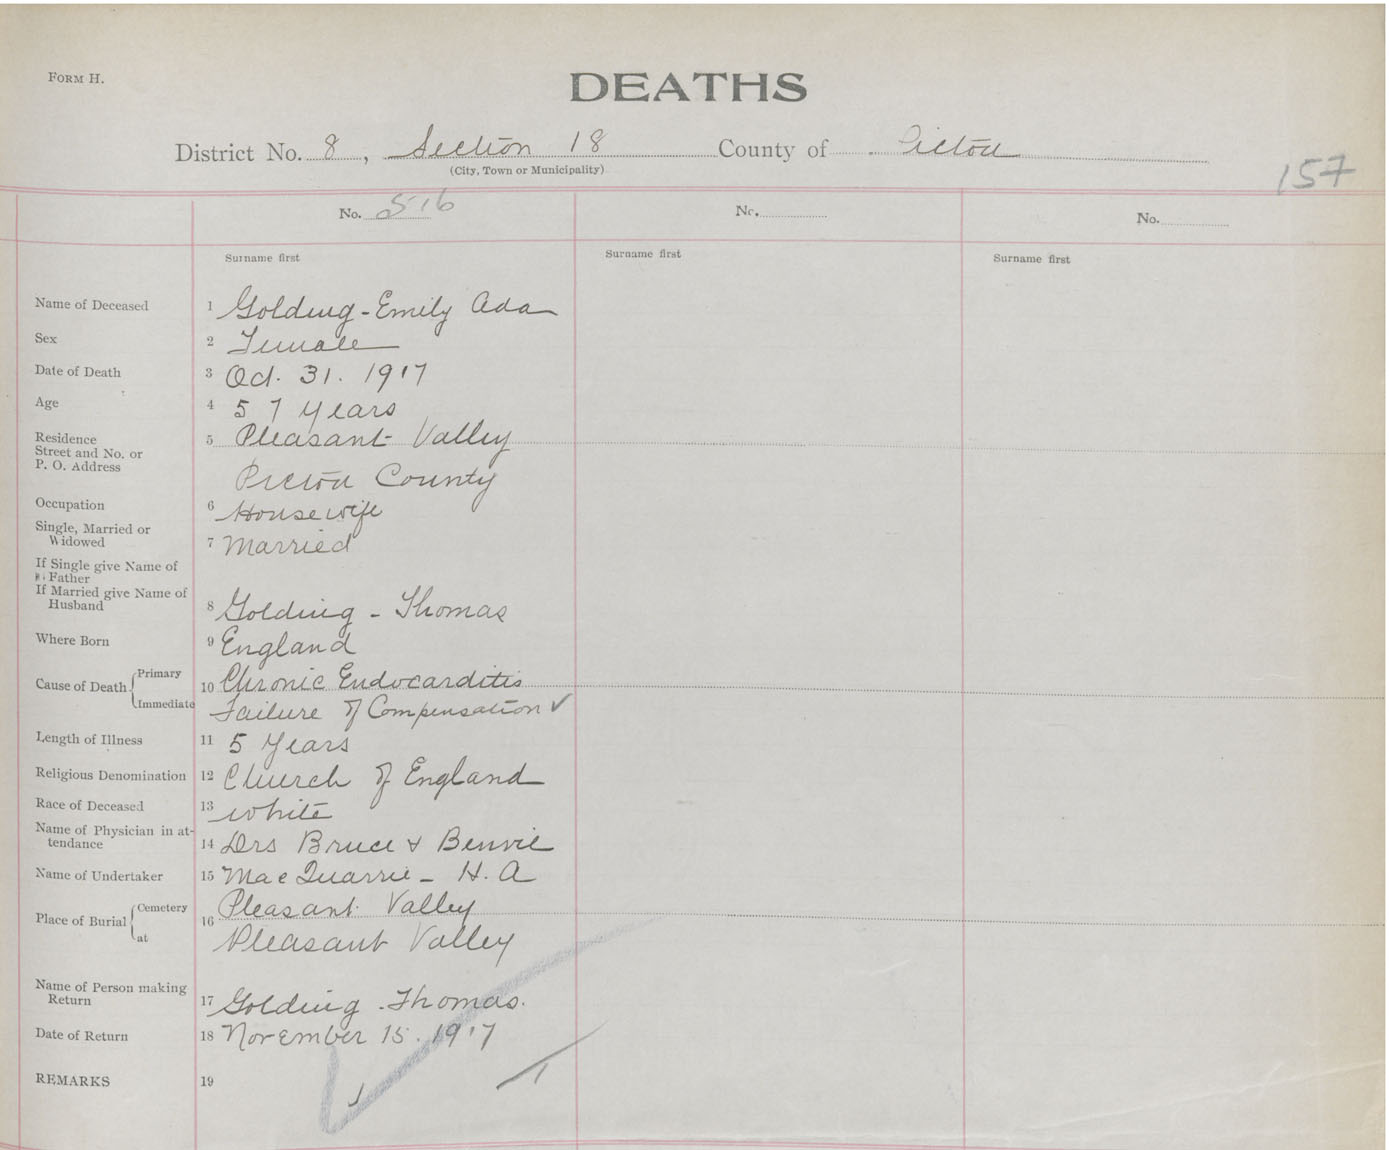 FORM H.
DEATHS
District No. 8, Section 18 County of Pictou
(City, Town or Municipality)
157
No. 516 No. No.
Surname first Surname first Surname first
Name of Deceased 1 Golding - Emily Ada
Sex 2 Female
Date of Death 3 Oct. 31. 1917
Age 4 57 Years
Residence 5 Pleasant Valley
Street and No. or
P. O. Address Pictou County
Occupation 6 Housewife
Single, Married or
Widowed 7 Married
If Single give Name of
Father
If Married give Name of
Husband 8 Golding - Thomas
Where Born 9 England
Cause of Death Primary 10 Chronic Endocarditis
Immediate Failure of Compensation ✓
Length of Illness 11 5 Years
Religious Denomination 12 Church of England
Race of Deceased 13 White
Name of Physician in at-
tendance 14 Drs Bruce & Benvie
Name of Undertaker 15 MacQuarrie - H. A
Place of Burial Cemetery 16 Pleasant Valley
at Pleasant Valley
Name of Person making
Return 17 Golding - Thomas.
Date of Return 18 November 15. 1917
REMARKS 19